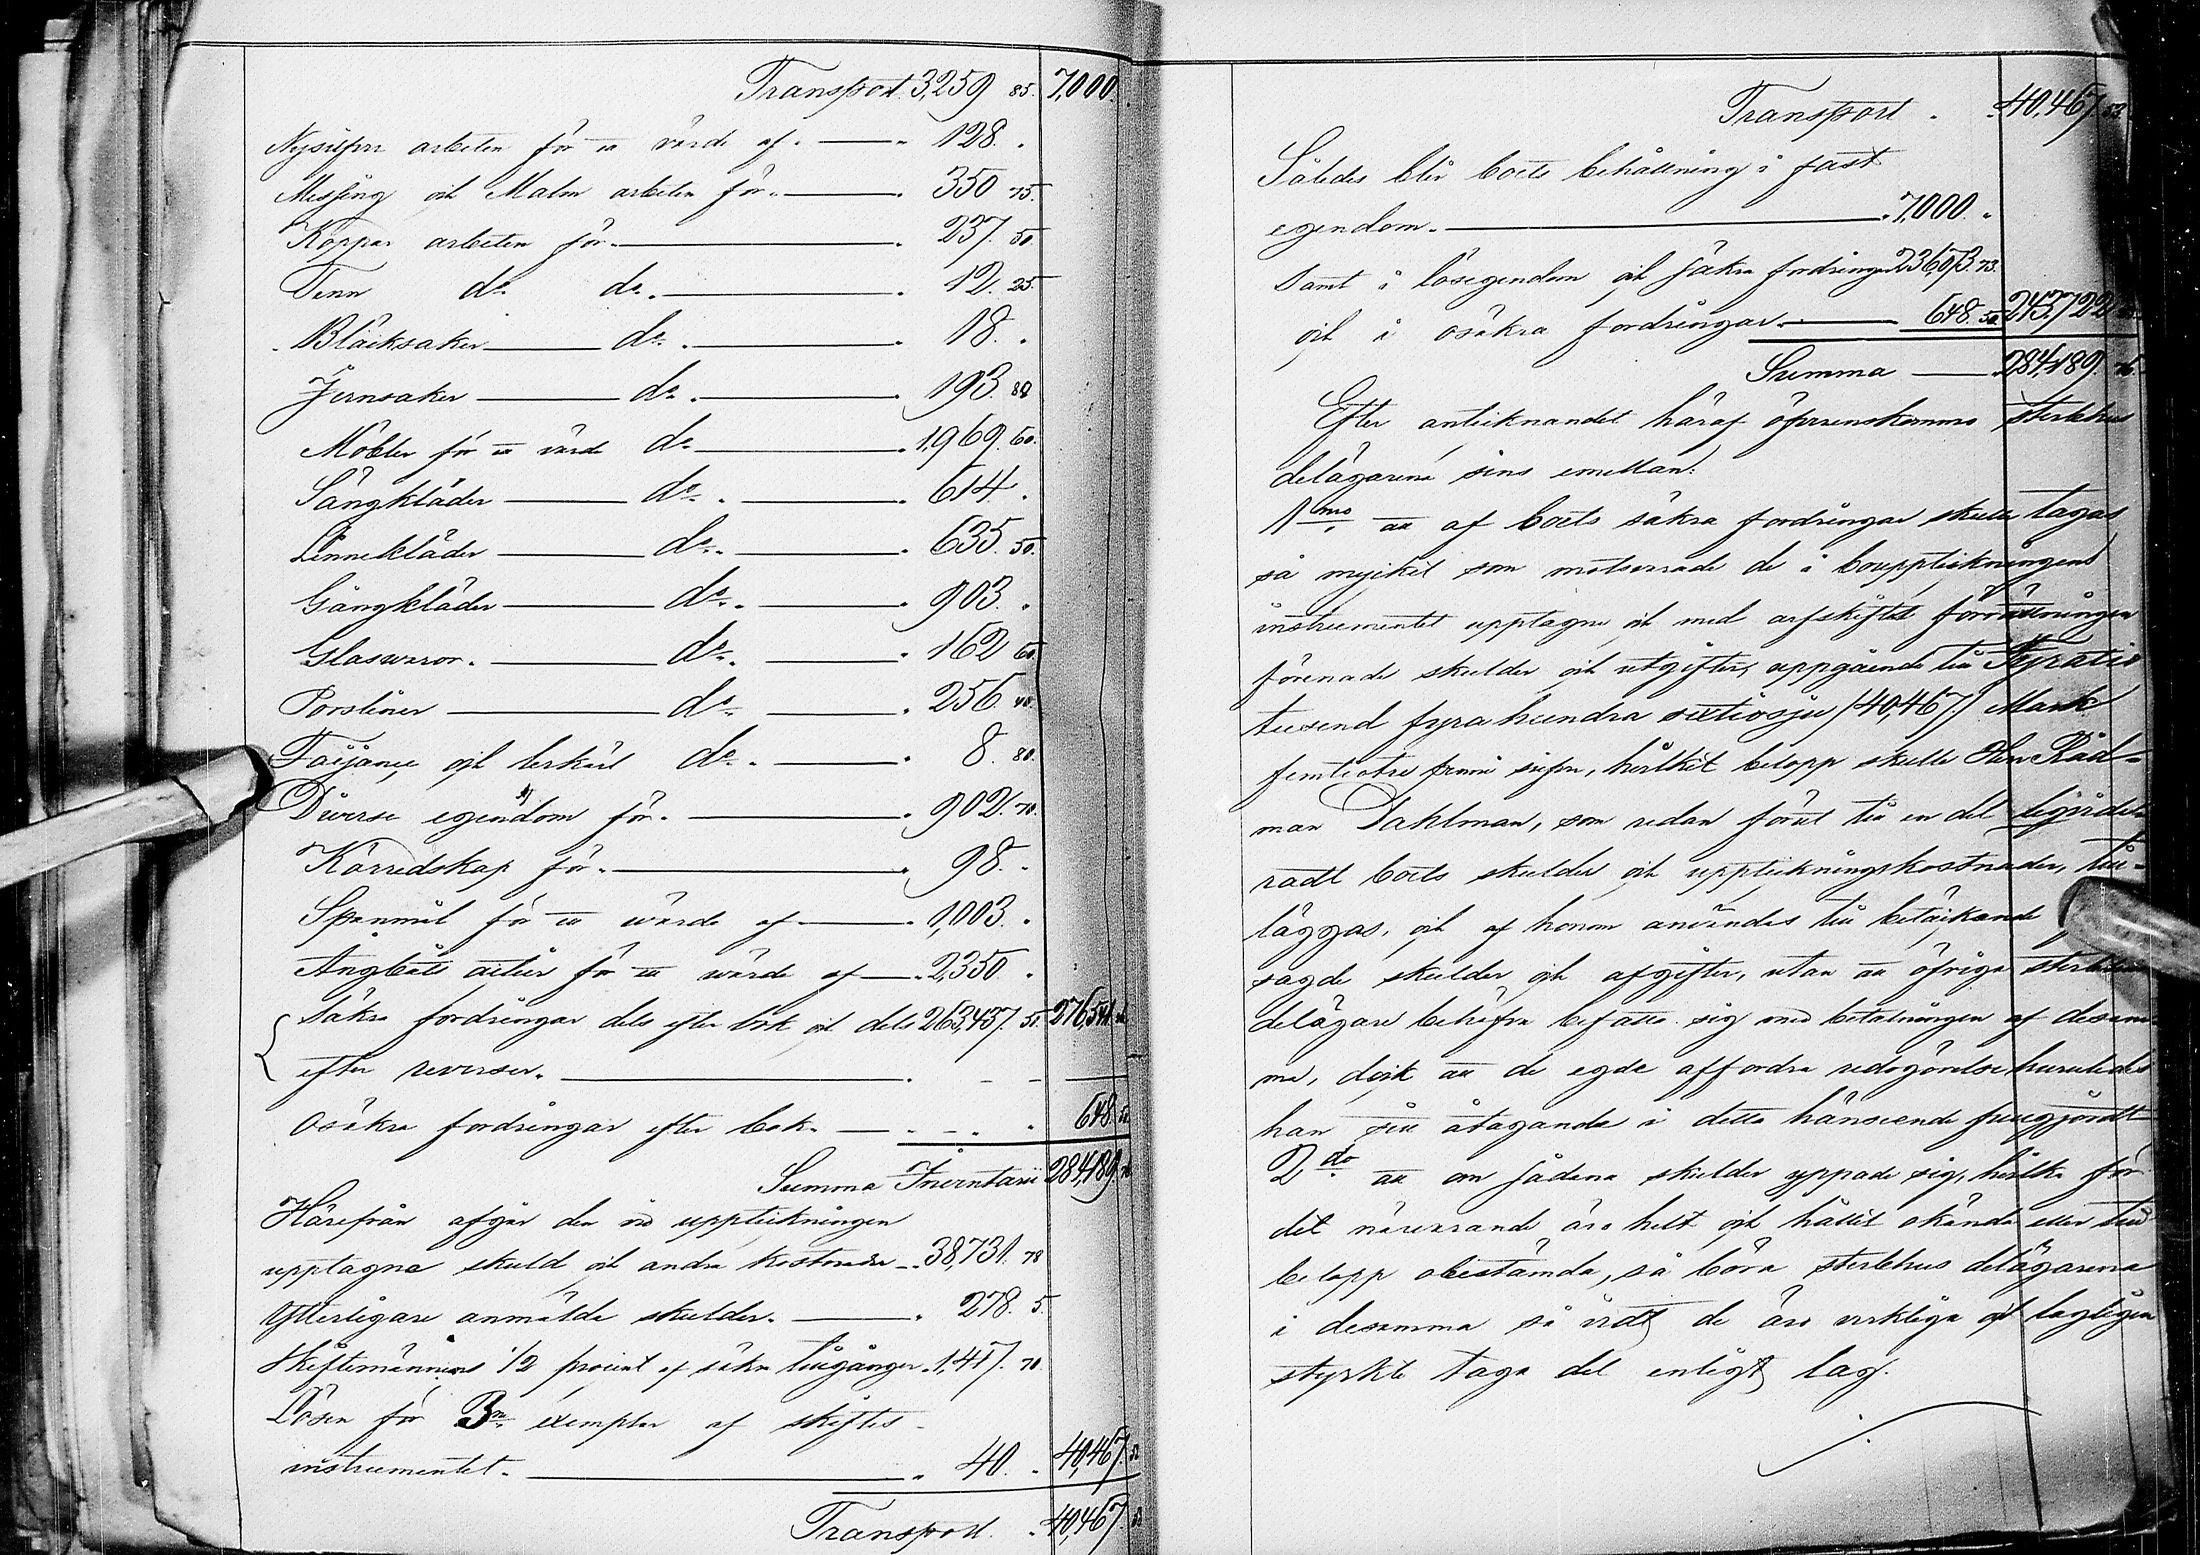 Transport. 3,259 85. 7,000.
Nysilfver arbeten för ett värde af. — " 128. "
Messing och Malm arbeten för. — " 350 75.
Koppar arbeten för. — " 237. 50.
Tenn do do. — " 12. 25.
Bläcksaker — do. — " 18. "
Jernsaker — do. — " 193. 80
Möbler för ett värde do — " 1,969. 60.
Sängkläder — do. — " 614. "
Linnekläder — do. — " 635. 50.
Gångkläder — do. — " 903. "
Glasvaror. — do. — " 162 60.
Porsliner — do. — " 256. 40.
Faijance och lerkärl do. — " 8. 80.
Diverse egendom för. — " 902. 70.
Körredskap för. — " 98. "
Spanmål för ett värde af — " 1,003. "
Ångbåts aktier för ett värde af — " 2,350. "
Säkra fordringar dels efter bok och dels 263,437. 51. 276,541.
efter reverser. —
Osäkra fordringar efter bok. — 648. 50
Summa Inventarii 284,189. 76
Härifrån afgår den vid uppteckningen
upptagna skuld och andra kostnader — 38,731. 78
Ytterligare anmälda skulder. — " 278. 5.
Skiftemännens 1/2 procent af säkra tillgånger " 1,417. 70.
Lösen för 3ne exemplar af skiftes-
instrumentet. — " 40. " 40,467. 53
Transport. " 40,467. 53
Transport " 40,467. 53.
Således blir boets behållning i fast
egendom. — " 7,000. "
samt i lösegendom och säkra fordringar 236,073. 73.
och i osäkra fordringar. — 648. 50 243,722
Summa — 284,189. 76.
Efter antecknandet häraf öfverenskommo sterbhus
delägarene sins emellan:
1mo att af boets säkra fordringar skulle tagas
så mycket som motsvarade de i bouppteckningens
instrumentet upptagne och med arfskiftets förrättningen
förenade skulder och utgifter, uppgående till Fyratio
tusend fyrahundra sextiosju /40,467/ Mark
femtiotre penni silfver, hvilket belopp skulle Herr Råd-
man Dahlman, som redan förut till en del liqvide-
radt boets skulder och uppteckningskostnader, till-
läggas, och af honom användas till betäckande
sagde skulder och afgifter, utan att öfriga sterbhus
delägare behöfva befatta sig med betalningen af desam-
ma, dock att de egde affordra redogörelse huruledes
han sitt åtagande i detta hänseende fullgjordt
2do att om sådana skulder yppade sig, hvilka för
det närvarande äro helt och hållit okända eller till
belopp obestämda, så böra sterbhus delägarena
i desamma så vidt de äro verkliga och lagligen
styrkte taga del enligt lag.